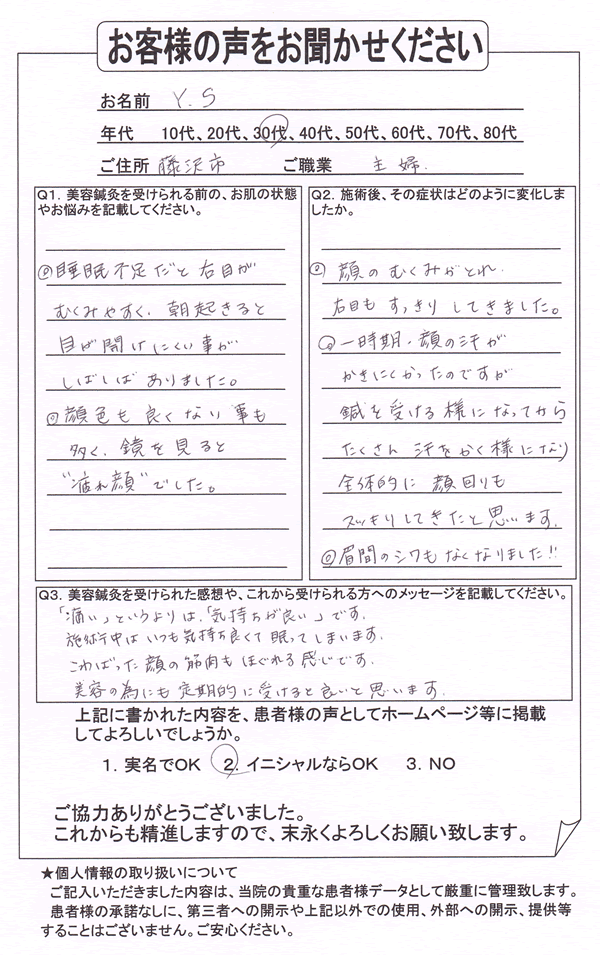 お客様の声をお聞かせください
お名前 Y.S
年代 10代、20代、30代、40代、50代、60代、70代、80代
ご住所 藤沢市 ご職業 主婦.
Q1. 美容鍼灸を受けられる前の、お肌の状態
やお悩みを記載してください。
◎睡眠不足だと右目が
むくみやすく、朝起きると
目が開けにくい事が
しばしばありました。
◎顔色も良くない事も
多く、鏡を見ると
"疲れ顔"でした。
Q2. 施術後、その症状はどのように変化しま
したか。
◎ 顔のむくみがとれ、
右目もすっきりしてきました。
◎一時期、顔の汗が
かきにくかったのですが
鍼を受ける様になってから
たくさん汗をかく様になり
全体的に顔回りも
スッキリしてきたと思います.
◎眉間のシワもなくなりました!!
Q3. 美容鍼灸を受けられた感想や、これから受けられる方へのメッセージを記載してください。
「痛い」というよりは、「気持ちが良い」です.
施術中はいつも気持ち良くて眠ってしまいます.
こわばった顔の筋肉もほぐれる感じです.
美容の為にも定期的に受けると良いと思います.
上記に書かれた内容を、患者様の声としてホームページ等に掲載
してよろしいでしょうか。
1. 実名でOK 2. イニシャルならOK 3. NO
ご協力ありがとうございました。
これからも精進しますので、末永くよろしくお願い致します。
★個人情報の取り扱いについて
ご記入いただきました内容は、当院の貴重な患者様データとして厳重に管理致します。
患者様の承諾なしに、第三者への開示や上記以外での使用、外部への開示、提供等
することはございません。ご安心ください。